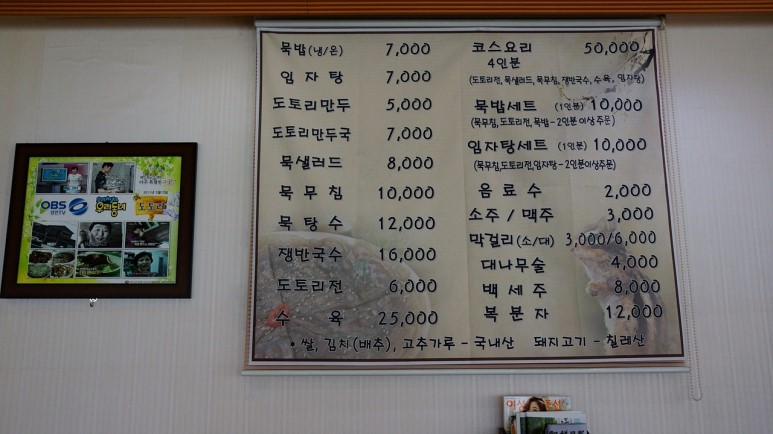 묵밥(냉/온) 7,000
임자탕 7,000
도토리만두 5,000
도토리만두국 7,000
묵샐러드 8,000
묵무침 10,000
묵탕수 12,000
쟁반국수 16,000
도토리전 6,000
수육 25,000
코스요리 50,000
4인분
(도토리전, 묵샐러드, 묵무침, 쟁반국수, 수육, 임자탕)
묵밥세트 (1인분) 10,000
(묵무침,도토리전,묵밥-2인분이상주문)
임자탕세트 (1인분) 10,000
(묵무침,도토리전,임자탕-2인분이상주문)
음료수 2,000
소주 / 맥주 3,000
막걸리(소/대) 3,000/6,000
대나무술 4,000
백세주 8,000
복분자 12,000
• 쌀, 김치(배추), 고추가루 - 국내산 돼지고기 - 칠레산
OBS
경인TV
우리동네